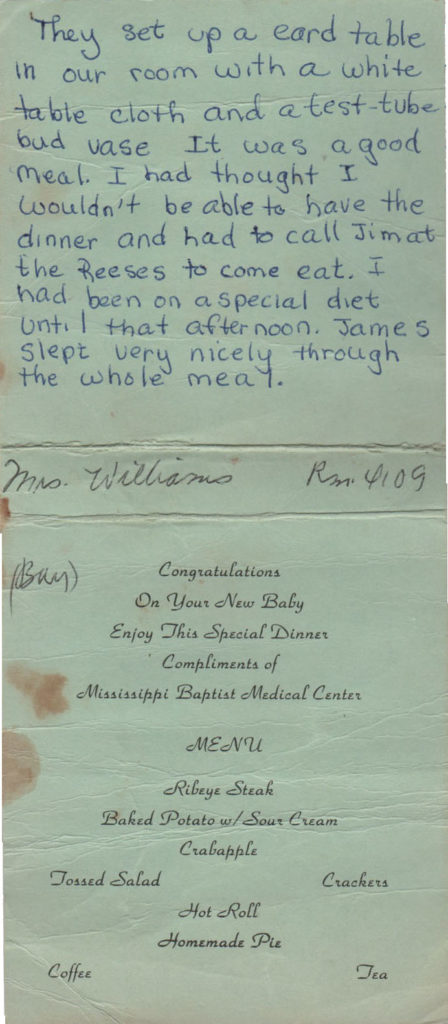 They set up a card table
in our room with a white
table cloth and a test-tube
bud vase It was a good
meal. I had thought I
wouldn't be able to have the
dinner and had to call Jim at
the Reeses to come eat. I
had been on a special diet
until that afternoon. James
slept very nicely through
the whole meal.
Mrs. Williams Rm. 4109
(Boy)
Congratulations
On Your New Baby
Enjoy This Special Dinner
Compliments of
Mississippi Baptist Medical Center
MENU
Ribeye Steak
Baked Potato w/Sour Cream
Crabapple
Tossed Salad Crackers
Hot Roll
Homemade Pie
Coffee Tea